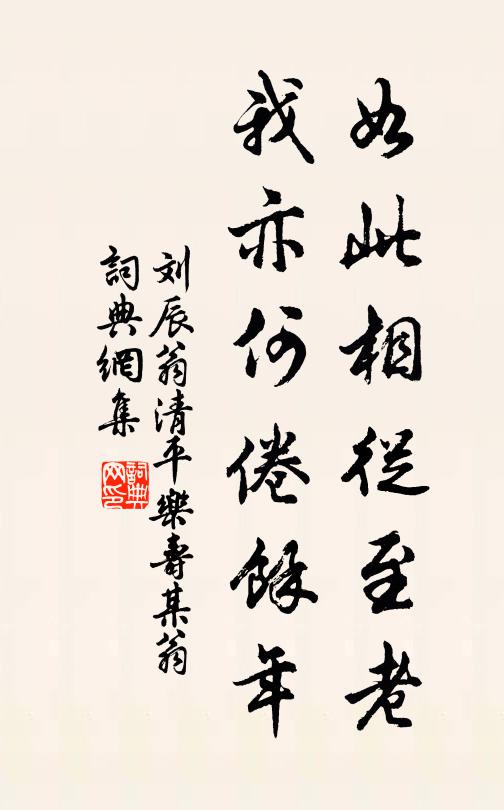 如此相從至老
我亦何倦餘年
刘辰翁清平樂壽某翁
詞典網集
詞典网印